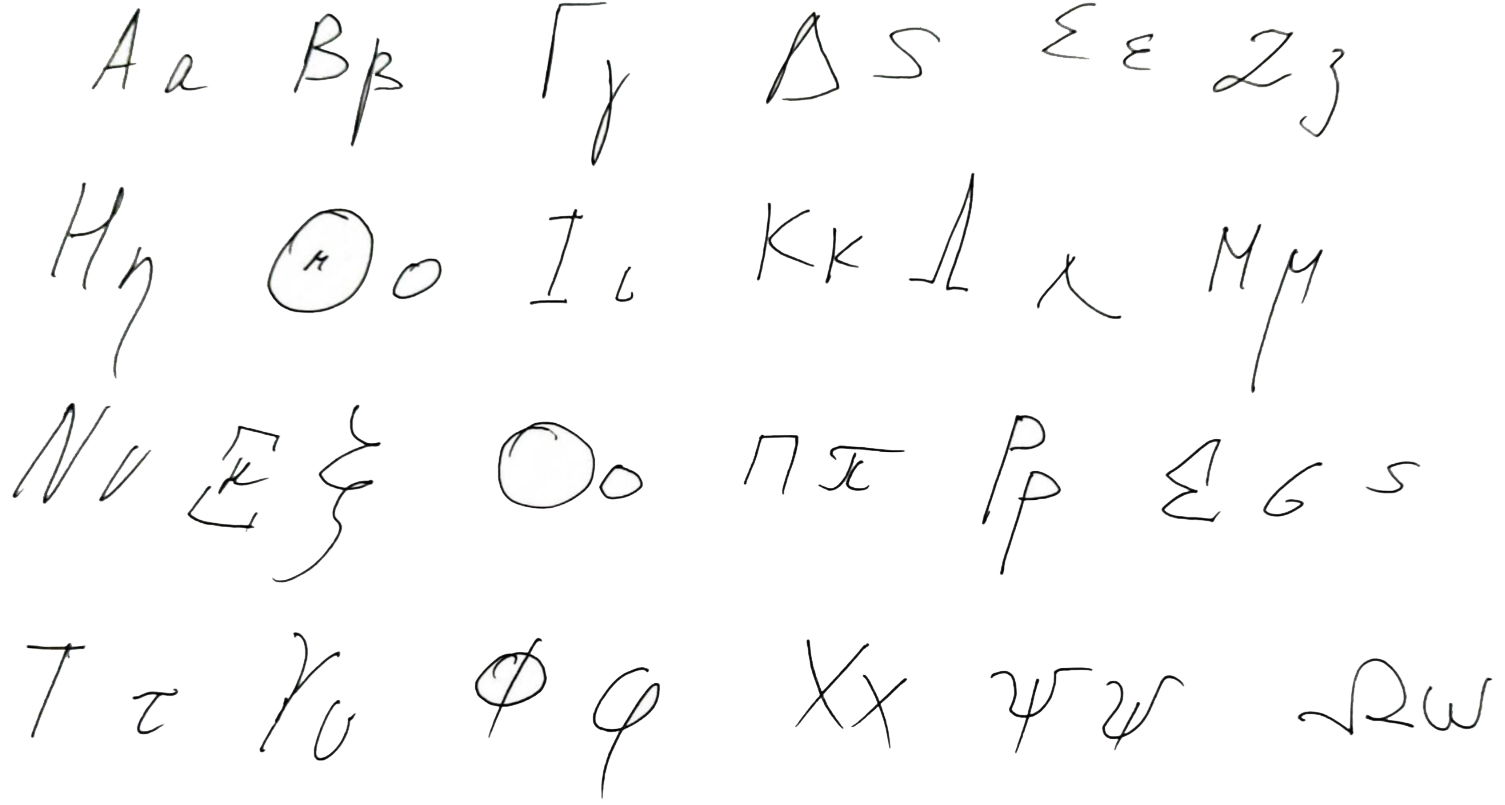 Α α Β β Γ γ Δ δ Ε ε Ζ ζ
Η η Θ ο Ι ι Κ κ Λ λ Μ μ
Ν ν Ξ ξ Ο ο Π π Ρ ρ Σ σ ς
Τ τ Υ υ Φ φ Χ χ Ψ ψ Ω ω